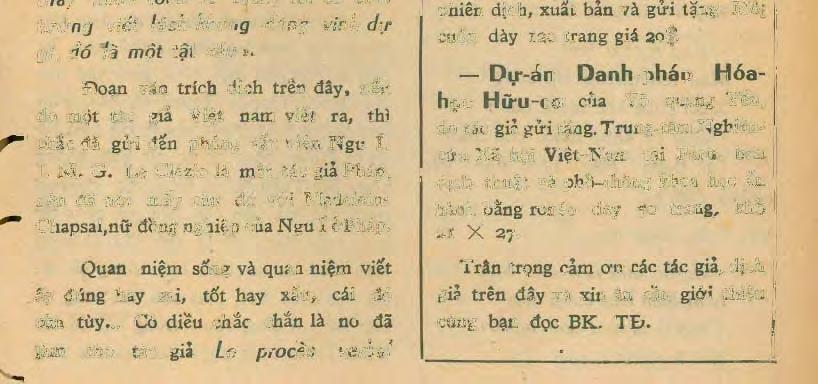 tưởng viết lách không đáng vinh dự
gì, đó là một tật xấu ».
Đoạn văn trích dịch trên đây, nếu
do một tác giả Việt nam viết ra, thì
chắc đã gửi đến phỏng vấn viên Ngu Í.
J. M. G. Le Clézio là một tác giả Pháp,
nên đã nói mấy câu đó với Madeleine
Chapsal, nữ đồng nghiệp của Ngu Í ở Pháp.
Quan niệm sống và quan niệm viết
ấy đúng hay sai, tốt hay xấu, cái đó
còn tùy... Có điều chắc chắn là nó đã
làm cho tác giả Le procès verbal
phiên dịch, xuất bản và gửi tặng. Mỗi
cuốn dày 120 trang giá 20$
— Dự-án Danh pháp Hóa-
học Hữu-cơ của Võ quang Yến,
do tác giả gửi tặng. Trung-tâm Nghiên-
cứu Xã hội Việt-Nam tại Paris, ban
dịch thuật và phổ-thông khoa học ấn
hành bằng ronéo dày 90 trang, khổ
21 × 27.
Trân trọng cảm ơn các tác giả, dịch
giả trên đây và xin ân cần giới thiệu
cùng bạn đọc BK. TĐ.